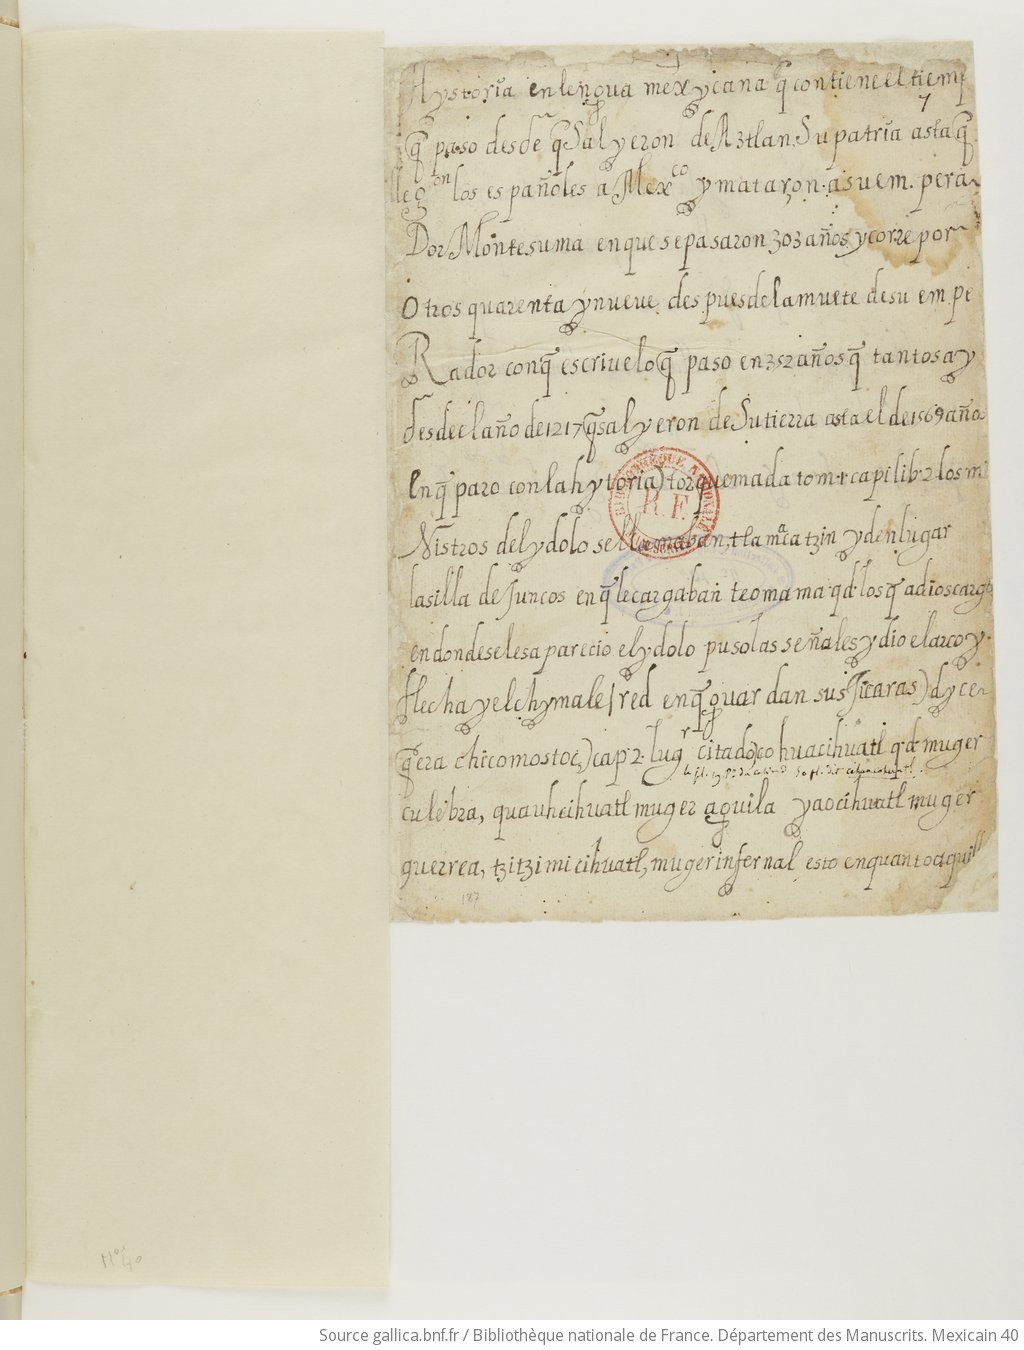 Hystoria en lengua mexycana q̄ contiene el tiemp
7
q̄ paso desde q̄ Salyeron de Aztlan Su patria asta q̄
lleg^on los españoles a Mex^co y mataron asu em. pera-
Dor Montesuma en que se pasaron 303 años y corre por
Otros quarenta y nueve despues de la muete de su em pe
Rador con q̄ escrive lo q̄ paso en 352 años q̄ tantos ay
desde el año de 1217 q̄ salyeron de Su tierra asta el de 1569 años
en q̄ paro con la hytoria) torquemada tom. 1 capi lib. 2 los m
Nistros del ydolo se llamaban, tlamacatzin y den lugar
la silla de Juncos en q̄ le cargaban teomama q.d. los q̄ a dios cargo
en donde se les aparecio el ydolo puso las señales y dio el arco y
flecha y el chymale / red en q̄ guardan sus Jicaras) d y ce-
q̄ era chicomostoc,) cap^r 2. lug^r citado, cohuacihuatl q.d. muger
culebra, quauhcihuatl muger aguila yaocihuatl muger
guerrea, tzitzimicihuatl, muger infernal esto en quanto aquill
187
N° 40
BIBLIOTHÈQUE NATIONALE
R.F.
MANUSCRITS
Source gallica.bnf.fr / Bibliothèque nationale de France. Département des Manuscrits. Mexicain 40